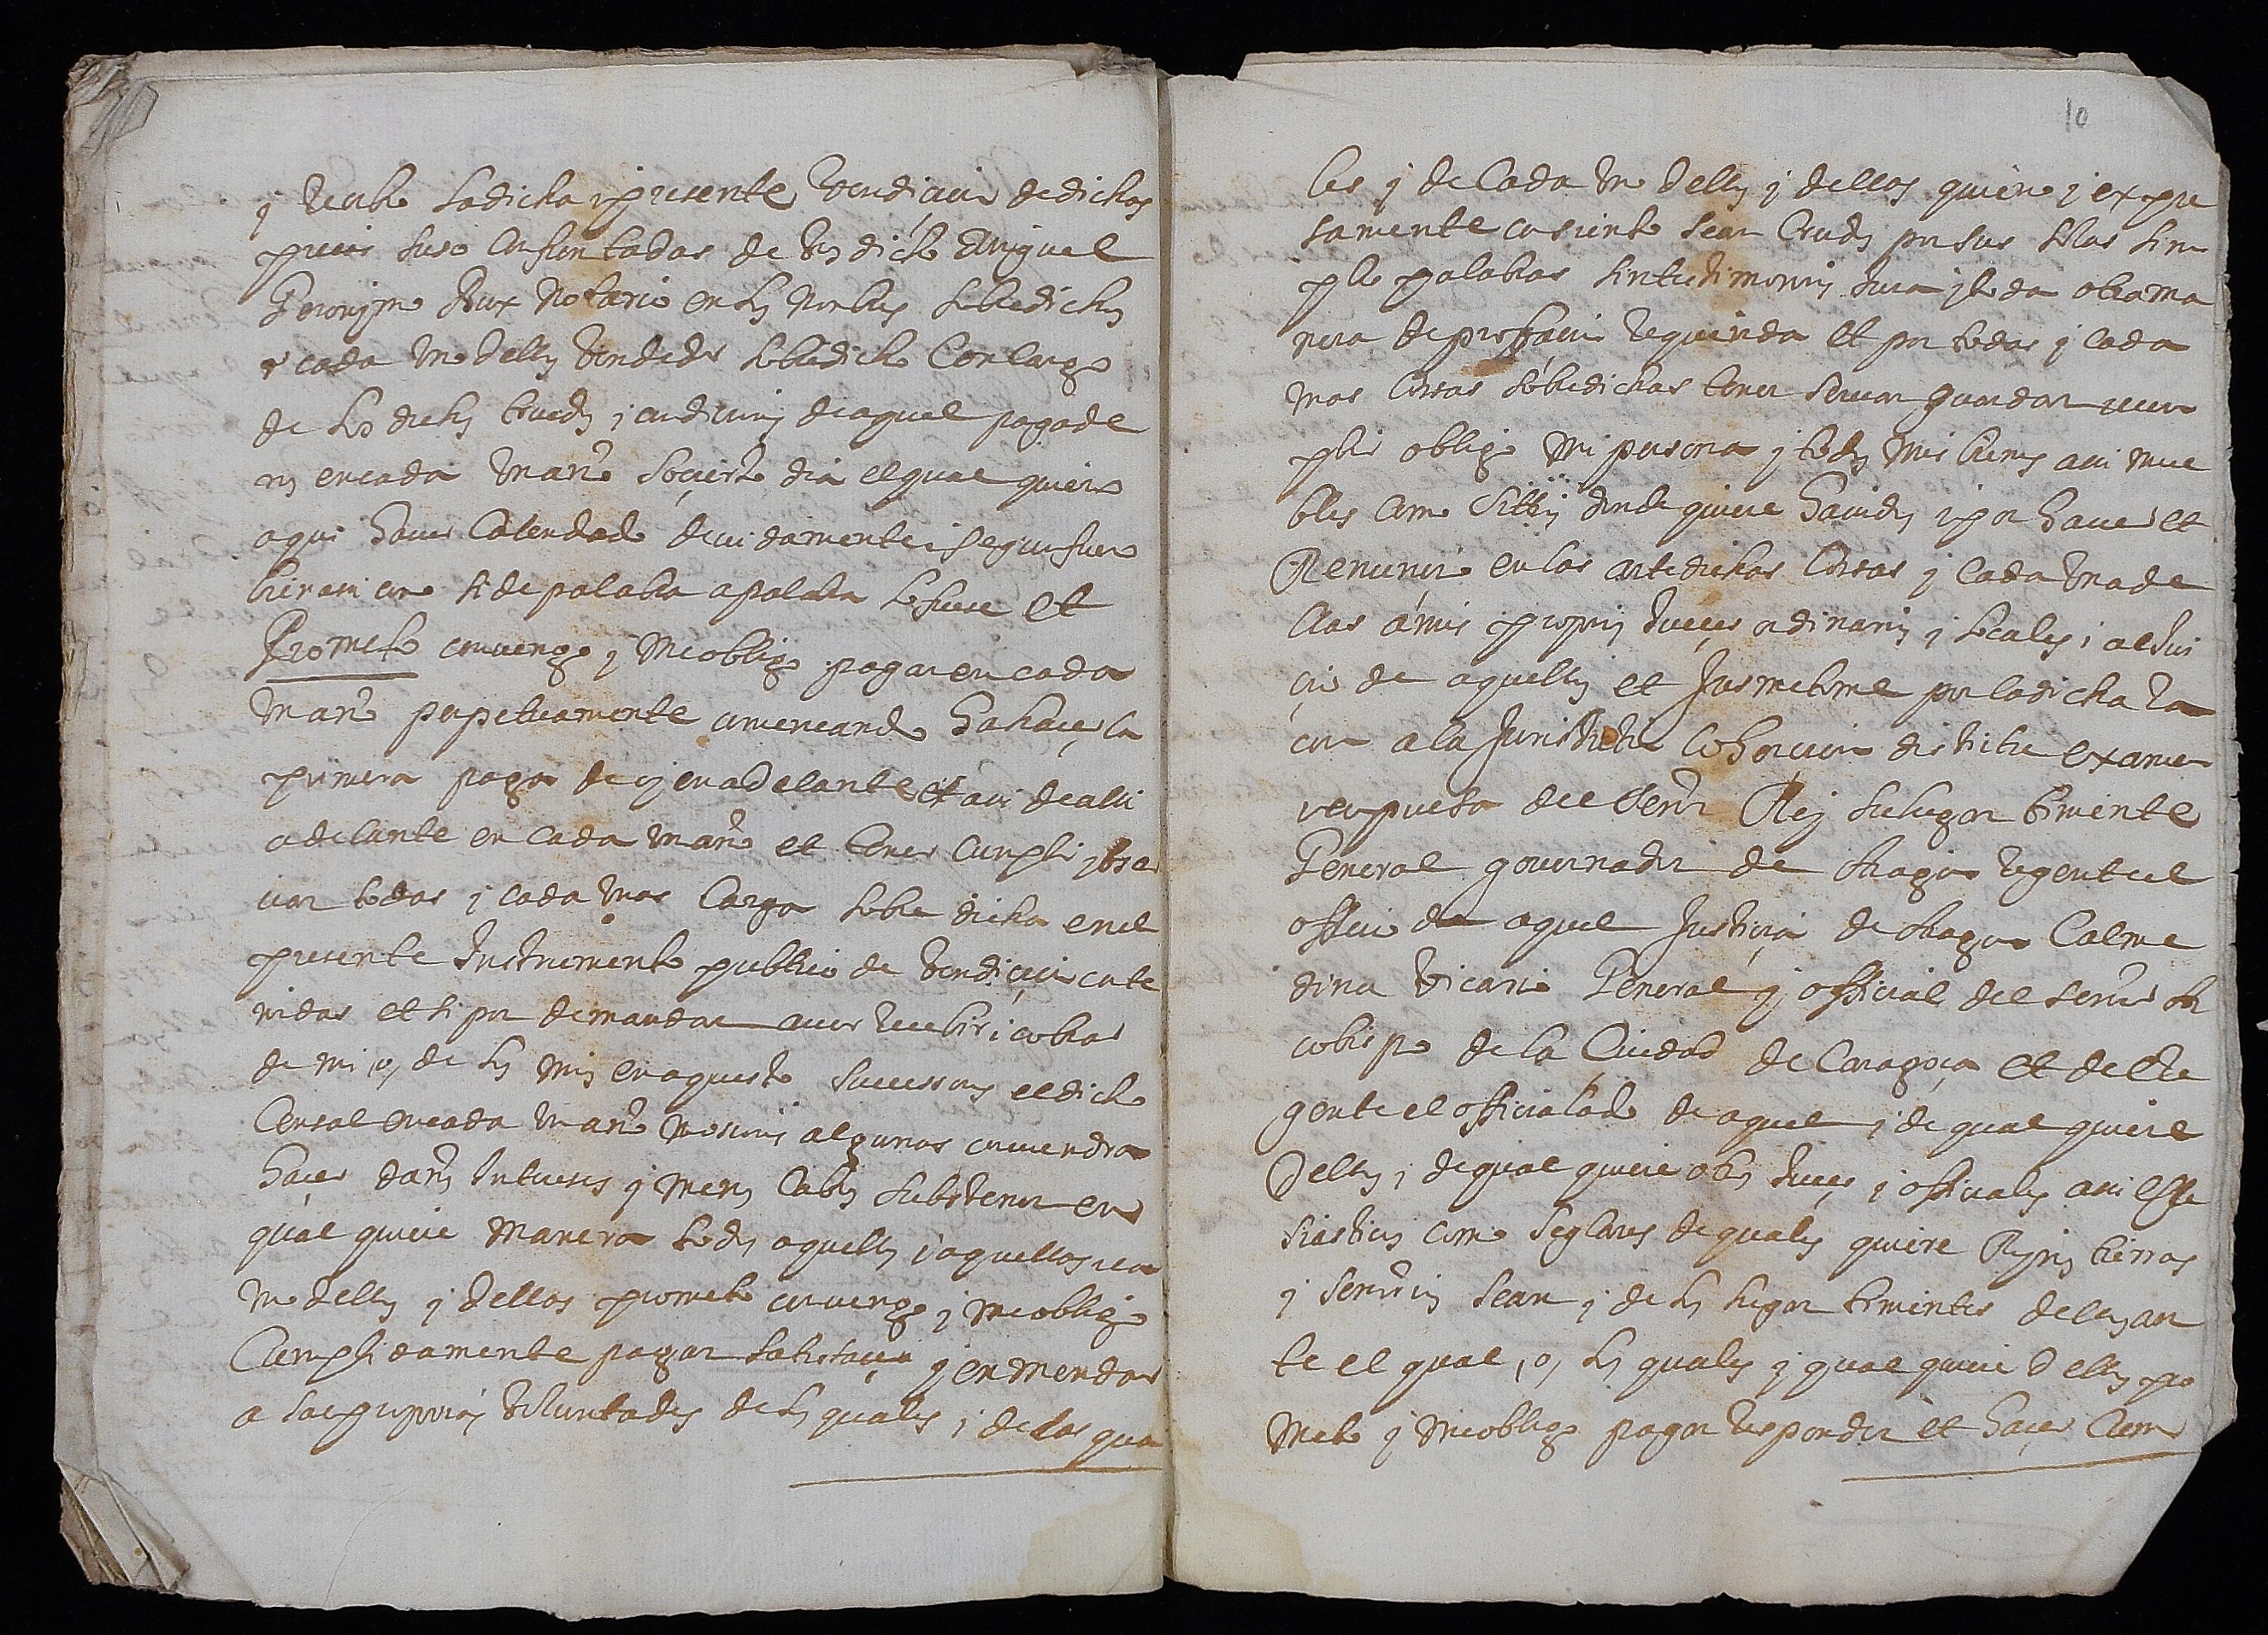 y recibo la dicha i presente Vendicion de dichas
pieças suso confrontadas de Vos dicho Miguel
Geronymo Aux Notario en los Nombres sobredichos
y cada Vno dellos Vendedor sobredicho Con Cargo
de los dichos treudos i condiciones de aquel pagade
ros en cada Vn año so cierto dia el qual quiero
aqui haver Calendado deuidamente i segun fuero
bien asi como si de palabra a palabra lo fuese Et
Prometo conuengo y Me obligo pagar en cada
Vn año perpetuamente comencando ha haçer la
primera paga de oy en adelante et asi de alli
adelante en cada Vn año et tener Cumplir y obser
uar todas y cada Vnas Cargas sobre dichas en el
presente Instrumento publico de Vendiçion conte
nidas et si por demandar auer reciuir i cobrar
de mi, o, de los mios en aquesto sucessores el dicho
Censal en cada Vn año Misiones algunas conuendra
haçer daños Intereses y Menos Cabos Substener en
qual quiere Manera todos aquellos i aquellas i ca
Vno dellos y dellas prometo conuengo y Me obligo
Cumplidamente pagar satisfaçer y enmendar
a las proprias Voluntades de los quales i de las qua
10
les y de Cada Vno dellos y dellas quiero y expre
samente consiento sean Creydos por sus solas sim
ples palabras sin testimonios Jura y toda otra ma
nera de probaçion requirida Et por todas y cada
Vnas Cosas sobredichas tener seruar guardar y cum
plir obligo Mi persona y todos Mis bienes asi mue
bles como sittios donde quiere hauidos i por hauer et
Renuncio en las antedichas Cosas y Cada Vna de
llas a mis proprios Jueçes ordinarios y locales i al Jui
çio de aquellos et Jusmetome por la dicha ra
çon a la Jurisdiction Cohercion districtu examen
y compulsa del señor Rey su lugar teniente
General gouernador de Aragon regente el
officio de aquel Justicia de Aragon Çalme
dina Vicario General y official del señor Ar
cobispo de la Ciudad de Caragoça et del Re
gente el officialado de aquel y de qual quiere
Dellos y de qual quiere otros Jueçes y officiales asi Ecle
siasticos como Seglares de quales quiere Reynos tierras
y señorios sean y de los lugar tenientes dellos an
te el qual, o, los quales y qual quiere Dellos pro
Meto y Me obligo pagar responder et haçer Cum